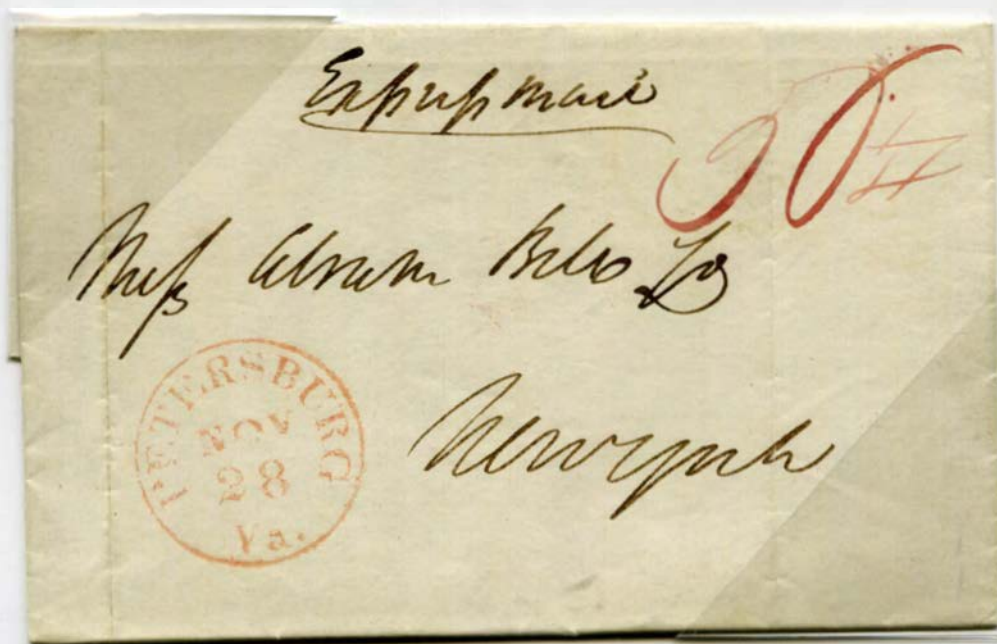 Express Mail
Mess Abraham Bell & Co
New York
PETERSBURG
NOV
28
Va.